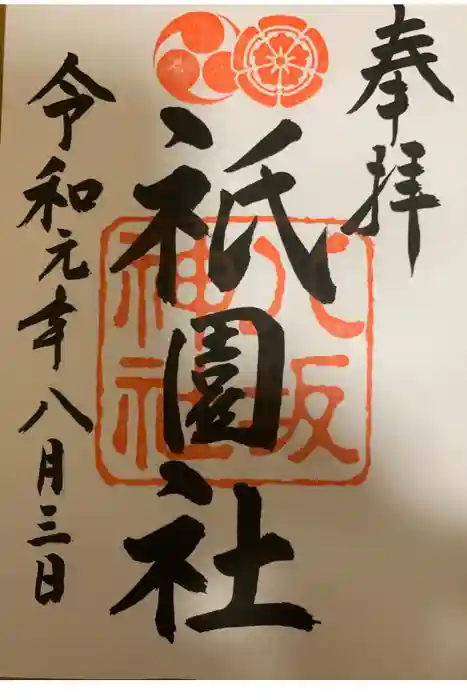 奉拝
祇園社
八坂
神社
令和元年八月三日